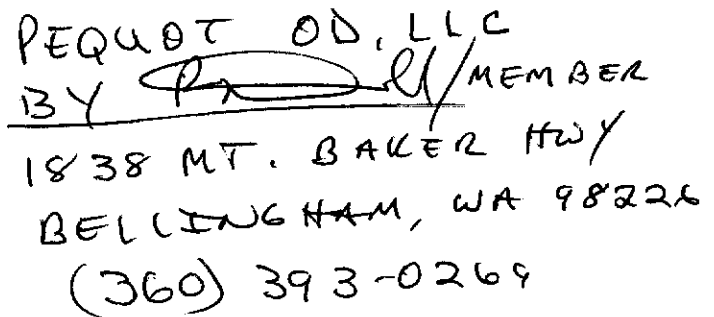 PEQUOT OD, LLC
BY /MEMBER
1838 MT. BAKER HWY
BELLINGHAM, WA 98226
(360) 393-0269